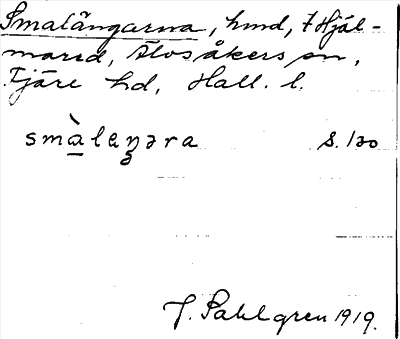 Smalängarna, hmd, t Hjäl-
mared, Älvsåkers sn,
Fjäre hd, Hall. l.
smàlaŋəra s. 120
J. Sahlgren 1919.